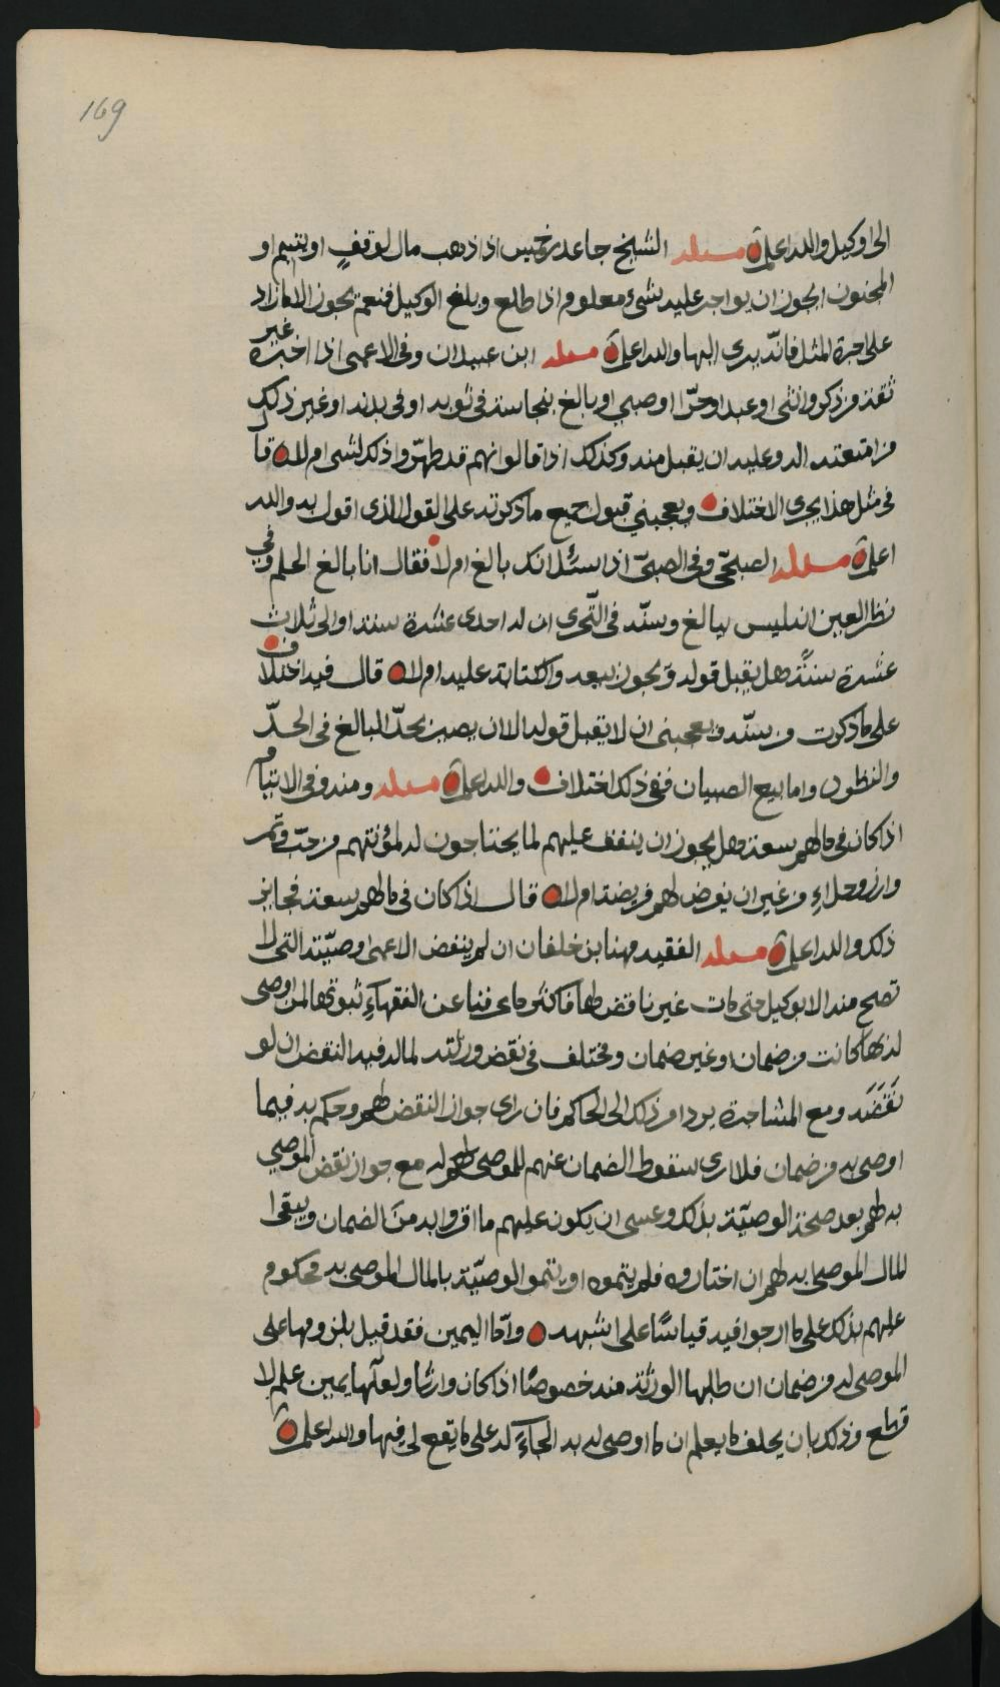 169
الى اوكيل والله اعلم مسئله الشيخ جاعد بن خميس اذا ذهب مال لوقفٍ او ليتيم او
المجنون ايجوز ان يواجر عليه بشيء معلوم اذا طلع وبلغ الوكيل فنعم يجوز الا ما زاد
على اجرة المثل فانّه يردى اليها والله اعلم مسئله ابن عبيدان وفي الاعمى اذا اخبره غير
ثقة من ذكر وانثى او عبد او حرّا او صبي او بالغ بنجاسة في ثوبه او في بدنه او غير ذلك
من امتعته اله وعليه ان يقبل منه وكذلك اذا قالوا انهم قد طهّروا ذلك الشي ام لا قال
في مثل هذا يجري الاختلاف ويعجبني قبول جميع ما ذكرته على القول الذي اقول به والله
اعلم مسئله الصبحي وفي الصبيّ اذا سئل انك بالغ ام لا فقال انا بالغ الحلم وفي
نظر العين انه ليس ببالغ وسنّه في التّحري ان له احدى عشرة سنة او الى ثلاث
عشرة سنةً هل يقبل قوله ويجوز بيعه والكتابة عليه ام لا قال فيه اختلاف
على ما ذكرت من سنّه ويعجبني ان لا يقبل قوله الا ان يصير بحدّ البالغ في الحدّ
والنظر واما بيع الصبيان ففي ذلك اختلاف والله اعلم مسئله ومنه وفي الايتام
اذا كان في مالهم سعة وهل يجوز ان ينفق عليهم لما يحتاجون له لمؤنتهم من حبّ وتمر
وارز وحلاء من غير ان يفرض لهم فريضة ام لا قال اذا كان في مالهم سعة فجايز
ذلك والله اعلم مسئله الفقيه مهنا بن خلفان ان لم ينقض الاعمى وصيّته التي لا
تصح منه الا بوكيل حتى مات غير ناقض لها فاكثر ما عرفنا عن الفقهاء ثبوتها لمن اوصى
له بها كانت من ضمان او غير ضمان ومختلف في نقض ورثته لماله فيه النقض ان لو
نَقَضَه ومع المشاجرة يرد امر ذلك الى الحاكم فان راى جواز النقض لهم وحكم به فيما
اوصى به من ضمان فلا ارى سقوط الضمان عنهم للموصى له مع جواز نقض الموصي
به لهم بعد صحة الوصيّة بذلك وعسى ان يكون عليهم ما اقروا به منَ الضمان ويبقى
المال الموصى به لهم ان اختاروه فلم يتموه او يتمو الوصيّة بالمال الموصى به محكوم
عليهم بذلك على ما ارجوا فيه قياسًا على اشبهه وامّا اليمين فقد قيل بلزومها على
الموصى له من ضمان ان طلبها الورثة منه خصوصًا اذا كان وارثا ولعلّها يمين علم لا
قطع وذلك بان يحلف ما يعلم ان ما اوصى له به الجاءً له على ما يقع لي فيها والله اعلم